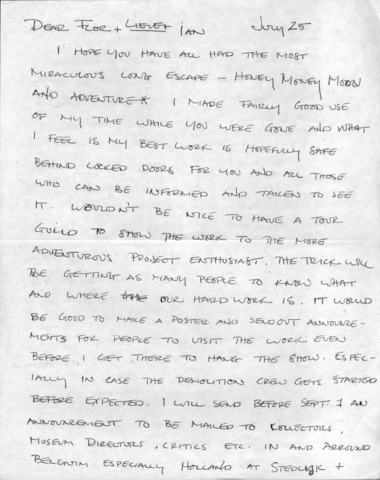 DEAR FLOR + LIEVE + IAN JULY 25
I HOPE YOU HAVE ALL HAD THE MOST
MIRACULOUS LONG ESCAPE – HONEY MONEY MOON
AND ADVENTURE* I MADE FAIRLY GOOD USE
OF MY TIME WHILE YOU WERE GONE AND WHAT
I FEEL IS MY BEST WORK IS HOPEFULLY SAFE
BEHIND LOCKED DOORS FOR YOU AND ALL THOSE
WHO CAN BE INFORMED AND TAKEN TO SEE
IT. WOULDN'T BE NICE TO HAVE A TOUR
GUILD TO SHOW THE WORK TO THE MORE
ADVENTUROUS PROJECT ENTHUSIAST. THE TRICK WILL
BE GETTING AS MANY PEOPLE TO KNOW WHAT
AND WHERE THE OUR HARD WORK IS. IT WOULD
BE GOOD TO MAKE A POSTER AND SEND OUT ANNOUNCE-
MENTS FOR PEOPLE TO VISIT THE WORK EVEN
BEFORE I GET THERE TO HANG THE SHOW. ESPEC-
IALLY IN CASE THE DEMOLITION CREW GETS STARTED
BEFORE EXPECTED. I WILL SEND BEFORE SEPT. 1 AN
ANNOUNCEMENT TO BE MAILED TO KOLLECTORS,
MUSEUM DIRECTORS, CRITICS ETC. IN AND ARROUND
BELGUIM ESPECIALLY HOLLAND AT STEDLIJK +